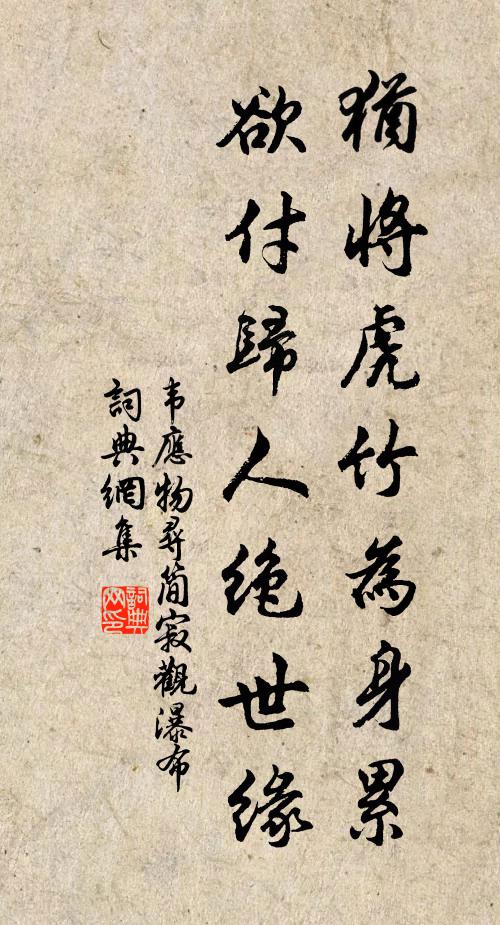 猶將虎竹為身累
欲付歸人絕世緣
韦應物尋简寂觀瀑布
詞典網集
詞典网印